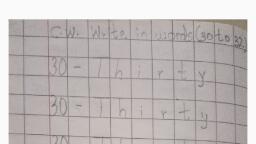 C.W. Write in words (30 to 32)
30 - Thirty
30 - Thirty
30